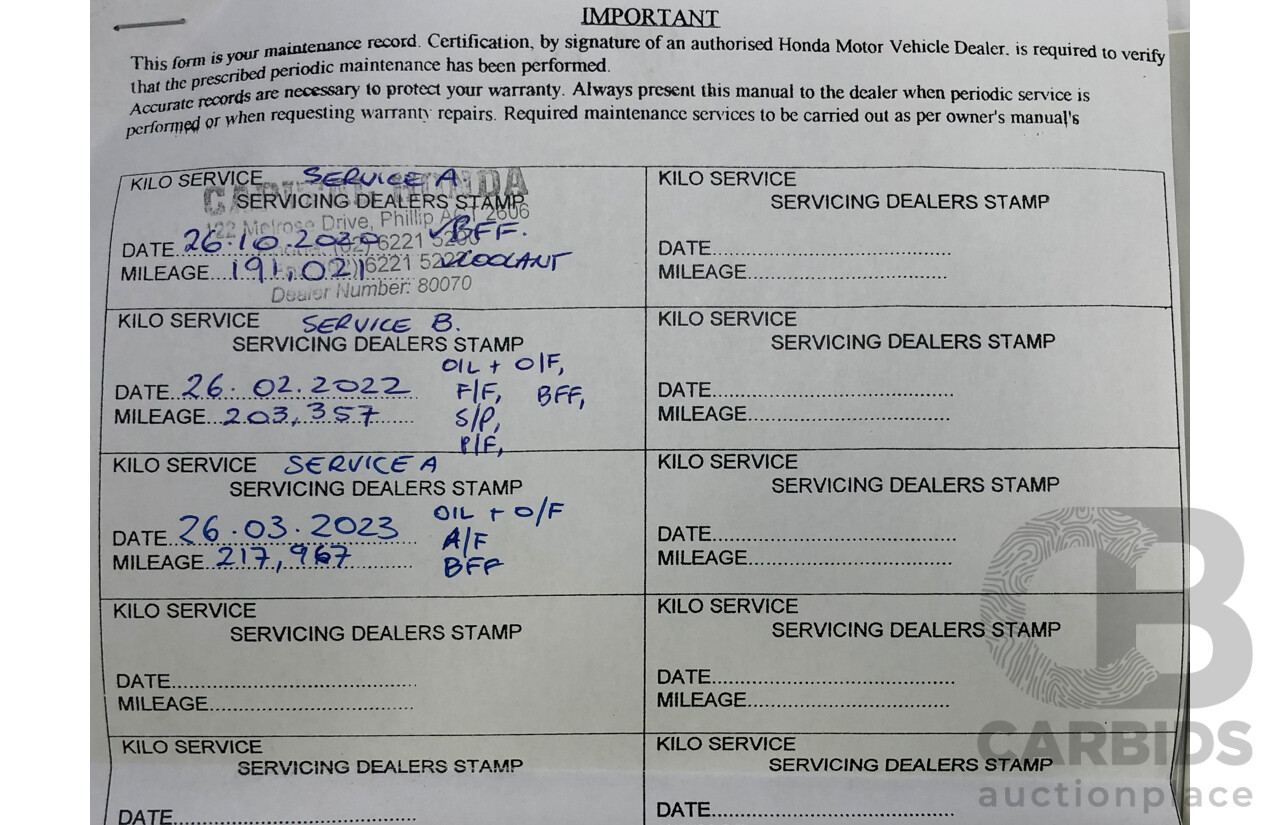 IMPORTANT
This form is your maintenance record. Certification, by signature of an authorised Honda Motor Vehicle Dealer. is required to verify
that the prescribed periodic maintenance has been performed.
Accurate records are necessary to protect your warranty. Always present this manual to the dealer when periodic service is
performed or when requesting warranty repairs. Required maintenance services to be carried out as per owner's manual's
KILO SERVICE SERVICE A
HONDA
SERVICING DEALERS STAMP
122 Melrose Drive, Phillip ACT 2606
DATE 26.10.2020 (02) 6221 5200 ✓BFF.
MILEAGE 191,021 6221 522 ✓COOLANT
Dealer Number: 80070
KILO SERVICE SERVICE B.
SERVICING DEALERS STAMP
OIL + O/F,
DATE 26.02.2022 F/F, BFF,
MILEAGE 203,357 S/P,
P/F,
KILO SERVICE SERVICE A
SERVICING DEALERS STAMP
OIL + O/F
DATE 26.03.2023 A/F
MILEAGE 217,967 BFF
KILO SERVICE
SERVICING DEALERS STAMP
DATE
MILEAGE
KILO SERVICE
SERVICING DEALERS STAMP
DATE
KILO SERVICE
SERVICING DEALERS STAMP
DATE
MILEAGE
KILO SERVICE
SERVICING DEALERS STAMP
DATE
MILEAGE
KILO SERVICE
SERVICING DEALERS STAMP
DATE
MILEAGE
KILO SERVICE
SERVICING DEALERS STAMP
DATE
MILEAGE
KILO SERVICE
SERVICING DEALERS STAMP
DATE
CB
CARBIDS
auctionplace